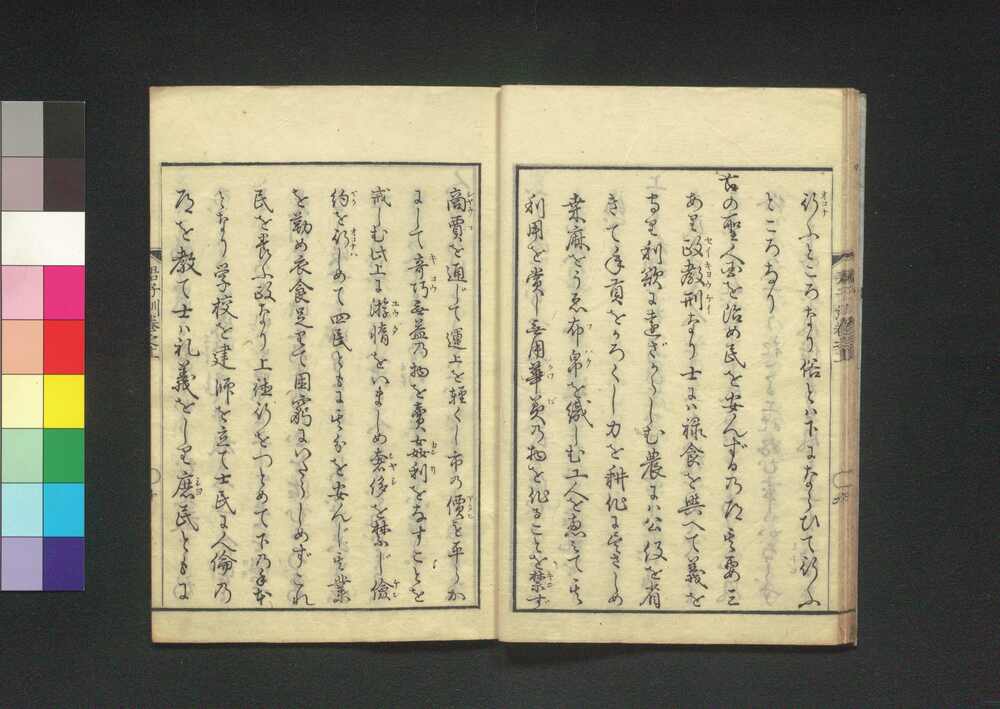 行ふところなり俗とハ下にならひて行ふ
ところなり
古の聖人国を治め民を安んずるの道其要三
あり政教刑なり士にハ禄食を与へて義を
守り利欲に遠ざからしむ農にハ公役を省
きて年貢をかろくし力を耕作に尽さしめ
桑麻をうゑ布帛を織しむ工人を恵みて其
利用を賞し無用華美の物を作ることを禁ず
商賈を通じて運上を軽くし市の価を平らか
にして奇巧無益の物を売姦利をなすことを
戒しむ此上に游惰をいましめ奢侈を禁じ倹
約を行しめて四民ともに其分を安んじ其業
を勤め衣食足りて困窮にいたらしめずこれ
民を養ふ政なり上徳行をつとめて下の手本
となり学校を建師を立て士民に人倫の
道を教て士ハ礼義をしり庶民ともに
君子訓巻之上